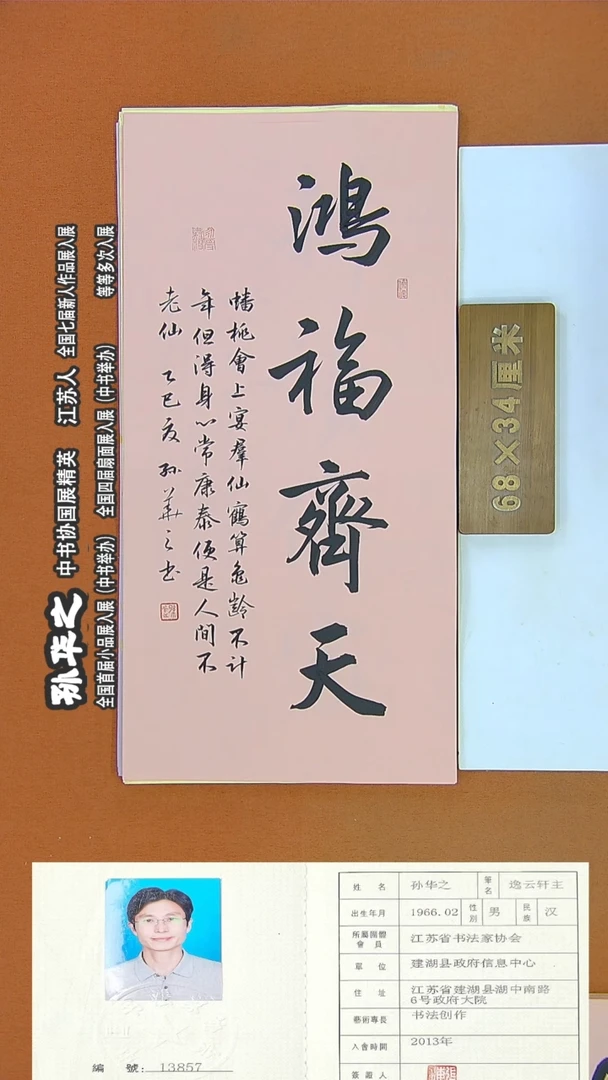 鴻福齊天
蟠桃會上宴羣仙鶴算龜齡不計
年但得身心常康泰便是人間不
老仙 乙巳夏 孙華之书
68×34厘米
孙华之 中书协国展精英 江苏人 全国七届新人作品展入展
全国首届小品展入展(中书举办) 全国四届扇面展入展(中书举办) 等等多次入展
編 號: 13857
姓 名 孙华之 筆名 逸云轩主
出生年月 1966.02 性別 男 民族 汉
所屬團體會員 江苏省书法家协会
單 位 建湖县政府信息中心
住 址 江苏省建湖县湖中南路
6号政府大院
藝術專長 书法创作
入會時間 2013年
簽證人